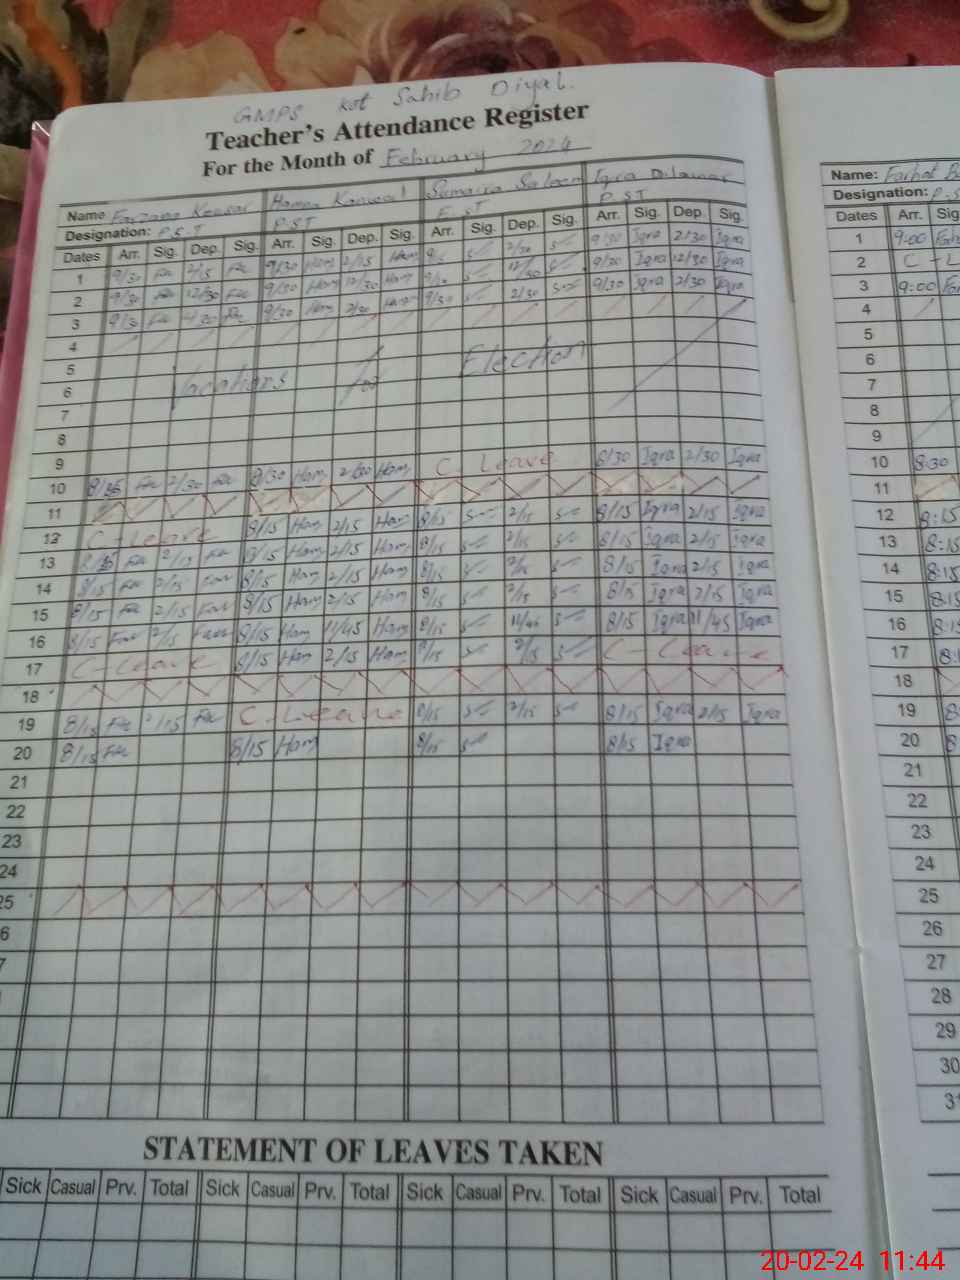 GMPS Kot Sahib Diyal.
Teacher's Attendance Register
For the Month of February 2024
Name Farzana Kousar Homan Kanwal Sumaira Saleem Iqra Dilawar
Designation: P.S.T P.ST E.ST P ST
Dates Arr. Sig. Dep. Sig. Arr. Sig. Dep. Sig. Arr. Sig. Dep. Sig. Arr. Sig. Dep. Sig.
1 9/30 Fa 2/15 Fa 9/30 Ham 2/15 Ham 2/30 9/30 Iqra 2/30 Iqra
2 9/30 Fa 12/30 Fa 9/30 Ham 12/30 Ham 12/30 9/30 Iqra 12/30 Iqra
3 9/30 Fa 9/30 Ham 2/30 Ham 9/30 2/30 9/30 Iqra 2/30 Iqra
4
5
6 Vacations for Election
7
8
9
10 8/35 Fa 2/30 Fa 8/30 Ham 2/30 Ham C-Leave 8/30 Iqra 2/30 Iqra
11
12 C-Leave 8/15 Ham 2/15 Ham 8/15 2/15 8/15 Iqra 2/15 Iqra
13 Fa 2/15 Fa 8/15 Ham 2/15 Ham 8/15 2/15 8/15 Iqra 2/15 Iqra
14 8/15 Fa 2/15 Far 8/15 Ham 2/15 Ham 8/15 2/15 8/15 Iqra 2/15 Iqra
15 8/15 Fa 2/15 Far 8/15 Ham 2/15 Ham 8/15 2/15 8/15 Iqra 2/15 Iqra
16 8/15 Far 2/15 Far 8/15 Ham 11/45 Ham 8/15 11/45 8/15 Iqra 11/45 Iqra
17 C-Leave 8/15 Ham 2/15 Ham 8/15 2/15 C-Leave
18
19 8/15 Fa 2/15 Fa C.Leave 8/15 2/15 8/15 Iqra 2/15 Iqra
20 8/15 Fa 8/15 Ham 8/15 8/15 Iqra
21
22
23
24
25
6
7
STATEMENT OF LEAVES TAKEN
Sick Casual Prv. Total Sick Casual Prv. Total Sick Casual Prv. Total Sick Casual Prv. Total
Name: Farhat
Designation: P.S
Dates Arr. Sig
1 9:00
2 C-L
3 9:00
4
5
6
7
8
9
10 8:30
11
12 8:15
13 8:15
14 8:15
15 8:15
16 8:1
17 8:
18
19 8
20 8
21
22
23
24
25
26
27
28
29
30
31
20-02-24 11:44